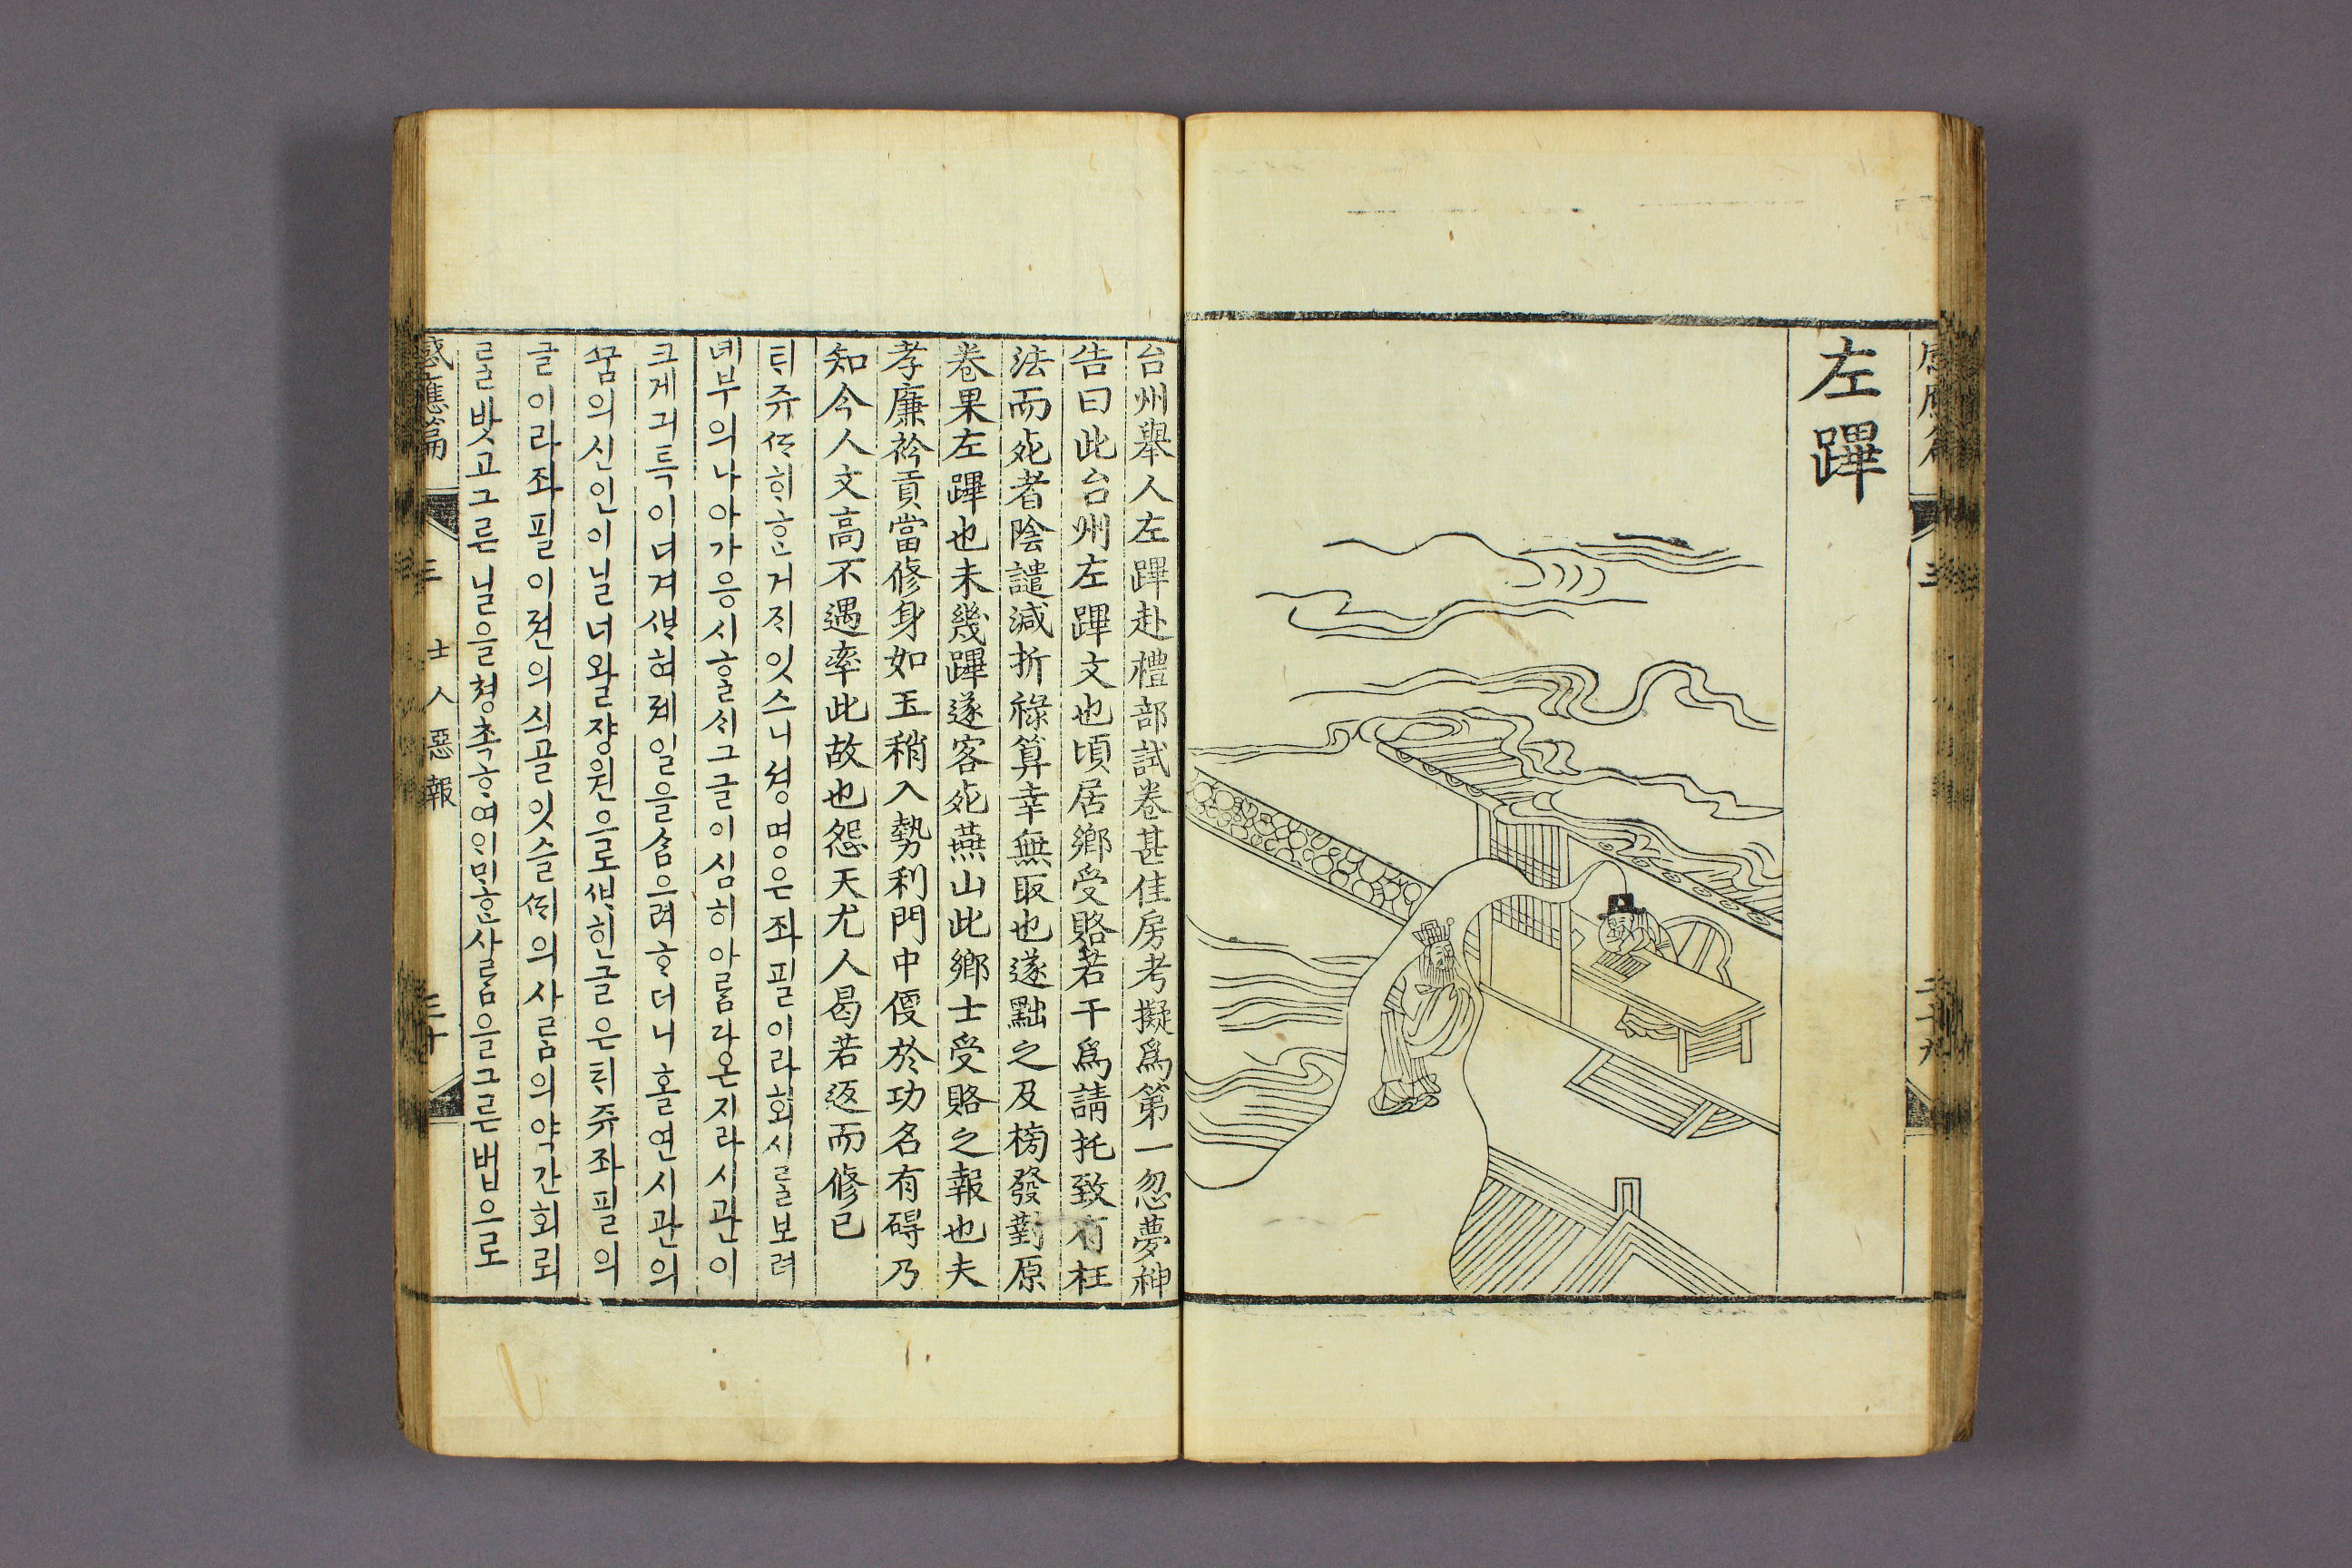 左蹕
台州舉人左蹕赴禮部試卷甚佳房考擬爲第一忽夢神
告曰此台州左蹕文也頃居鄕受賂若干爲請托致有枉
法而死者陰譴减折祿算幸無取也遂黜之及榜發對原
卷果左蹕也未幾蹕遂客死燕山此鄕士受賂之報也夫
孝廉衿貢當修身如玉稍入勢利門中便於功名有碍乃
知今人文高不遇率此故也怨天尤人曷若返而修已
ᄐᆡ쥬ᄯᆞ희ᄒᆞᆫ거ᄌᆡ잇스니셩명은좌필이라회시ᄅᆞᆯ보려
녜부의나아가응시ᄒᆞᆯᄉᆡ그글이심히아ᄅᆞᆷ다온지라시관이
크게긔특이녀겨ᄲᅢ혀졔일을ᄉᆞᆷ으려ᄒᆞ더니홀연시관의
ᄭᅮᆷ의신인이닐너왈쟝원으로ᄲᅢ힌글은ᄐᆡ쥬좌필의
글이라좌필이젼의싀골잇슬ᄯᆡ의사ᄅᆞᆷ의약간회뢰
ᄅᆞᆯ밧고그른닐을쳥촉ᄒᆞ여ᄋᆡᄆᆡᄒᆞᆫ사ᄅᆞᆷ을그른법으로
感應篇
三
士人惡報
三十